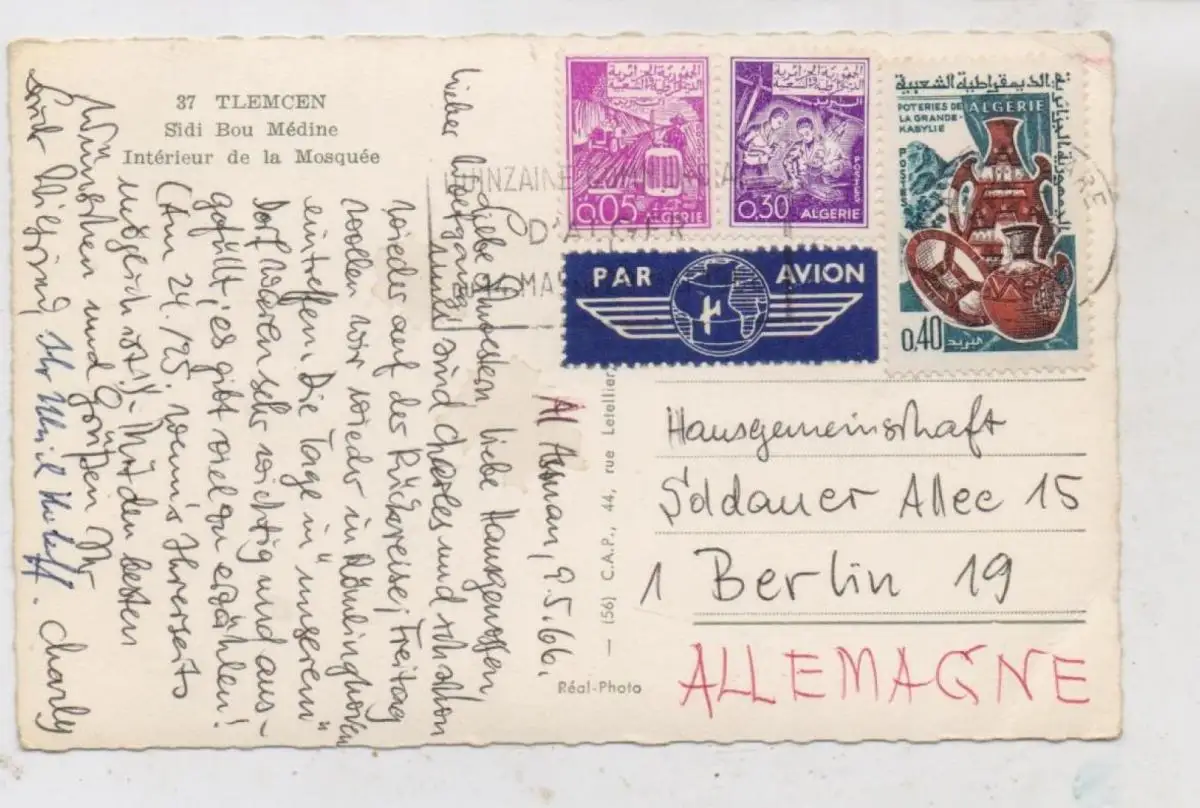 37 TLEMCEN
Sidi Bou Médine
Intérieur de la Mosquée
الجمهورية الجزائرية
الديمقراطية الشعبية
البريد
0.05 ALGERIE
الجمهورية الجزائرية
الديمقراطية الشعبية
البريد
POSTES
0,30 ALGERIE
الجمهورية الجزائرية الديمقراطية الشعبية
POTERIES DE ALGERIE
LA GRANDE-
KABYLIE
POSTES
0,40
البريد
QUINZAINE
D'ALGER
PAR AVION
9.5.66.
Lieber
Liebe Schwestern, liebe Hausgenossen,
sind Charles und ich schon
wieder auf der Rückreise; Freitag
wollen wir wieder in
eintreffen. Die Tage in "unserem"
Dorf waren sehr wichtig und aus-
gefüllt; es gibt viel zu erzählen!
(Am 24./25. wenn's Ihrerseits
möglich ist!). Mit den besten
Wünschen und Grüßen Ihr
Ihr
Charly
— (56) C.A.P., 44, rue Letellier,
Réal-Photo
Hausgemeinschaft
Soldauer Allee 15
1 Berlin 19
ALLEMAGNE